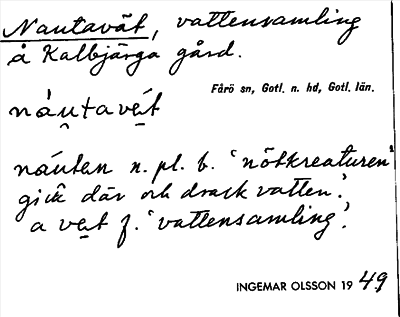 Nautavät, vattensamling
å Kalbjärga gård.
Fårö sn, Gotl. n. hd, Gotl. län.
nàu̯tavę́t
náuten n. pl. b. 'nötkreaturen'
gick där och drack vatten'.
a vęt f. 'vattensamling'.
INGEMAR OLSSON 1949